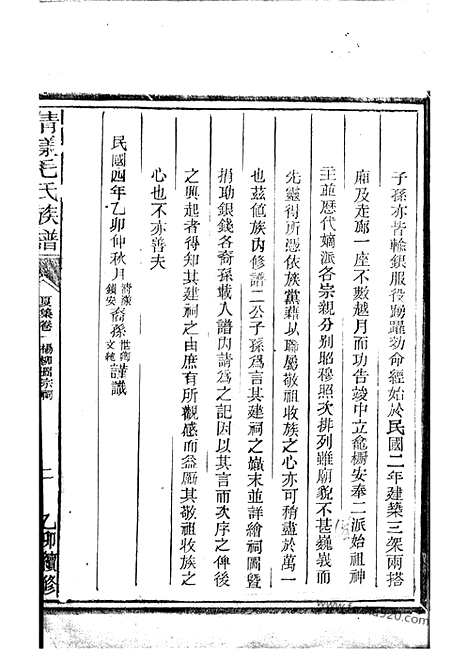 子孫亦皆輸銀服役踴躍効命經始於民國二年建築三架兩搭
廂及走廊一座不數越月而功告竣中立龕櫥安奉二派始祖神
主並歷代嫡派各宗親分別昭穆照次排列雖廟貌不甚巍峩而
先靈得所憑依族黨藉以聯屬敬祖收族之心亦可稍盡於萬一
也茲値族內修譜二公子孫爲言其建祠之巔末並詳繪祠圖曁
捐助銀錢各裔孫載入譜內請爲之記因以其言而次序之俾後
之興起者得知其建祠之由庶有所觀感而益勵其敬祖收族之
心也不亦善夫
民國四年乙卯仲秋月 裔孫 謹識
清漾毛氏族譜
夏集卷一 楊柳 宗祠
二
乙卯續修